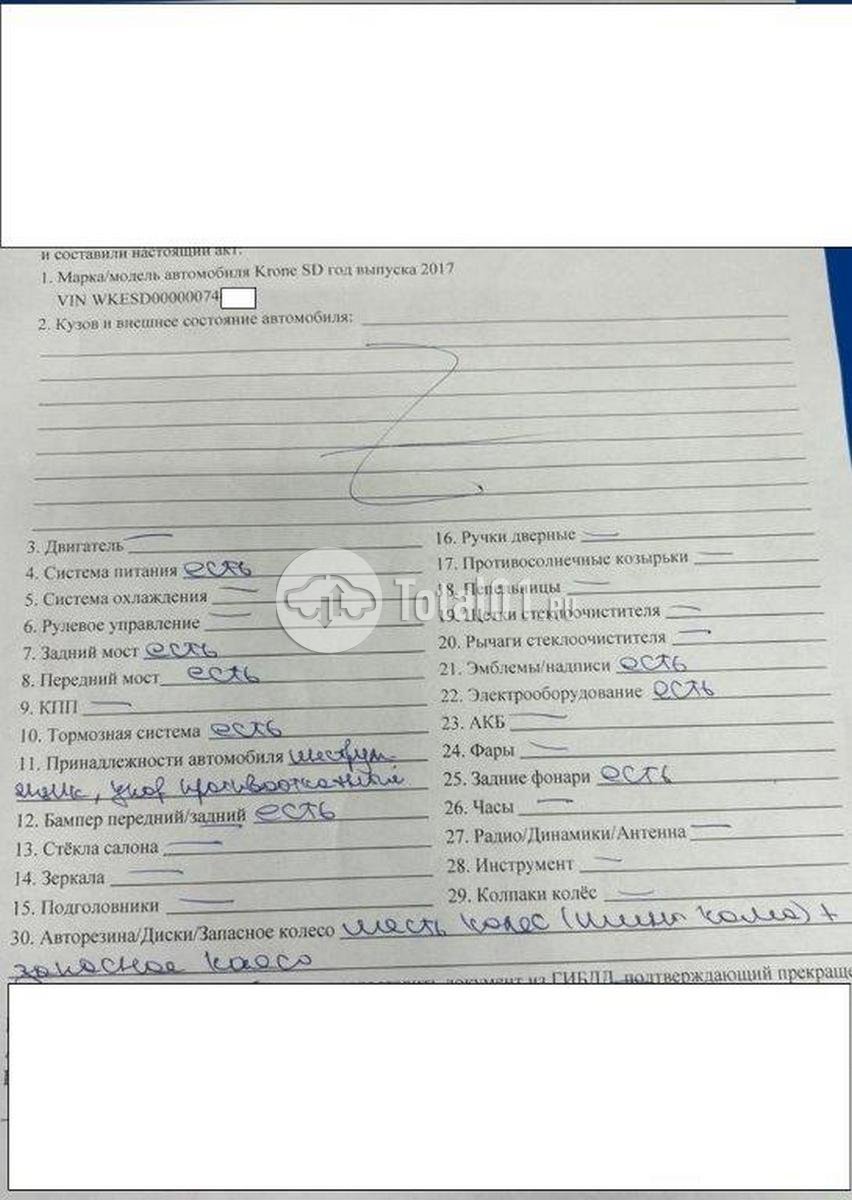 и составили настоящий акт:
1. Марка/модель автомобиля Krone SD год выпуска 2017
VIN WKESD00000074
2. Кузов и внешнее состояние автомобиля:
3. Двигатель —
4. Система питания есть
5. Система охлаждения —
6. Рулевое управление —
7. Задний мост есть
8. Передний мост есть
9. КПП —
10. Тормозная система есть
11. Принадлежности автомобиля
ящик, упор противооткатный
12. Бампер передний/задний есть
13. Стёкла салона —
14. Зеркала —
15. Подголовники —
16. Ручки дверные —
17. Противосолнечные козырьки —
18. Пепельницы —
19. Щетки стеклоочистителя —
20. Рычаги стеклоочистителя —
21. Эмблемы/надписи есть
22. Электрооборудование есть
23. АКБ —
24. Фары —
25. Задние фонари есть
26. Часы —
27. Радио/Динамики/Антенна —
28. Инструмент —
29. Колпаки колёс —
30. Авторезина/Диски/Запасное колесо шесть колес (шины) +
запасное колесо
документ из ГИБДД, подтверждающий прекраще
Total01.ru